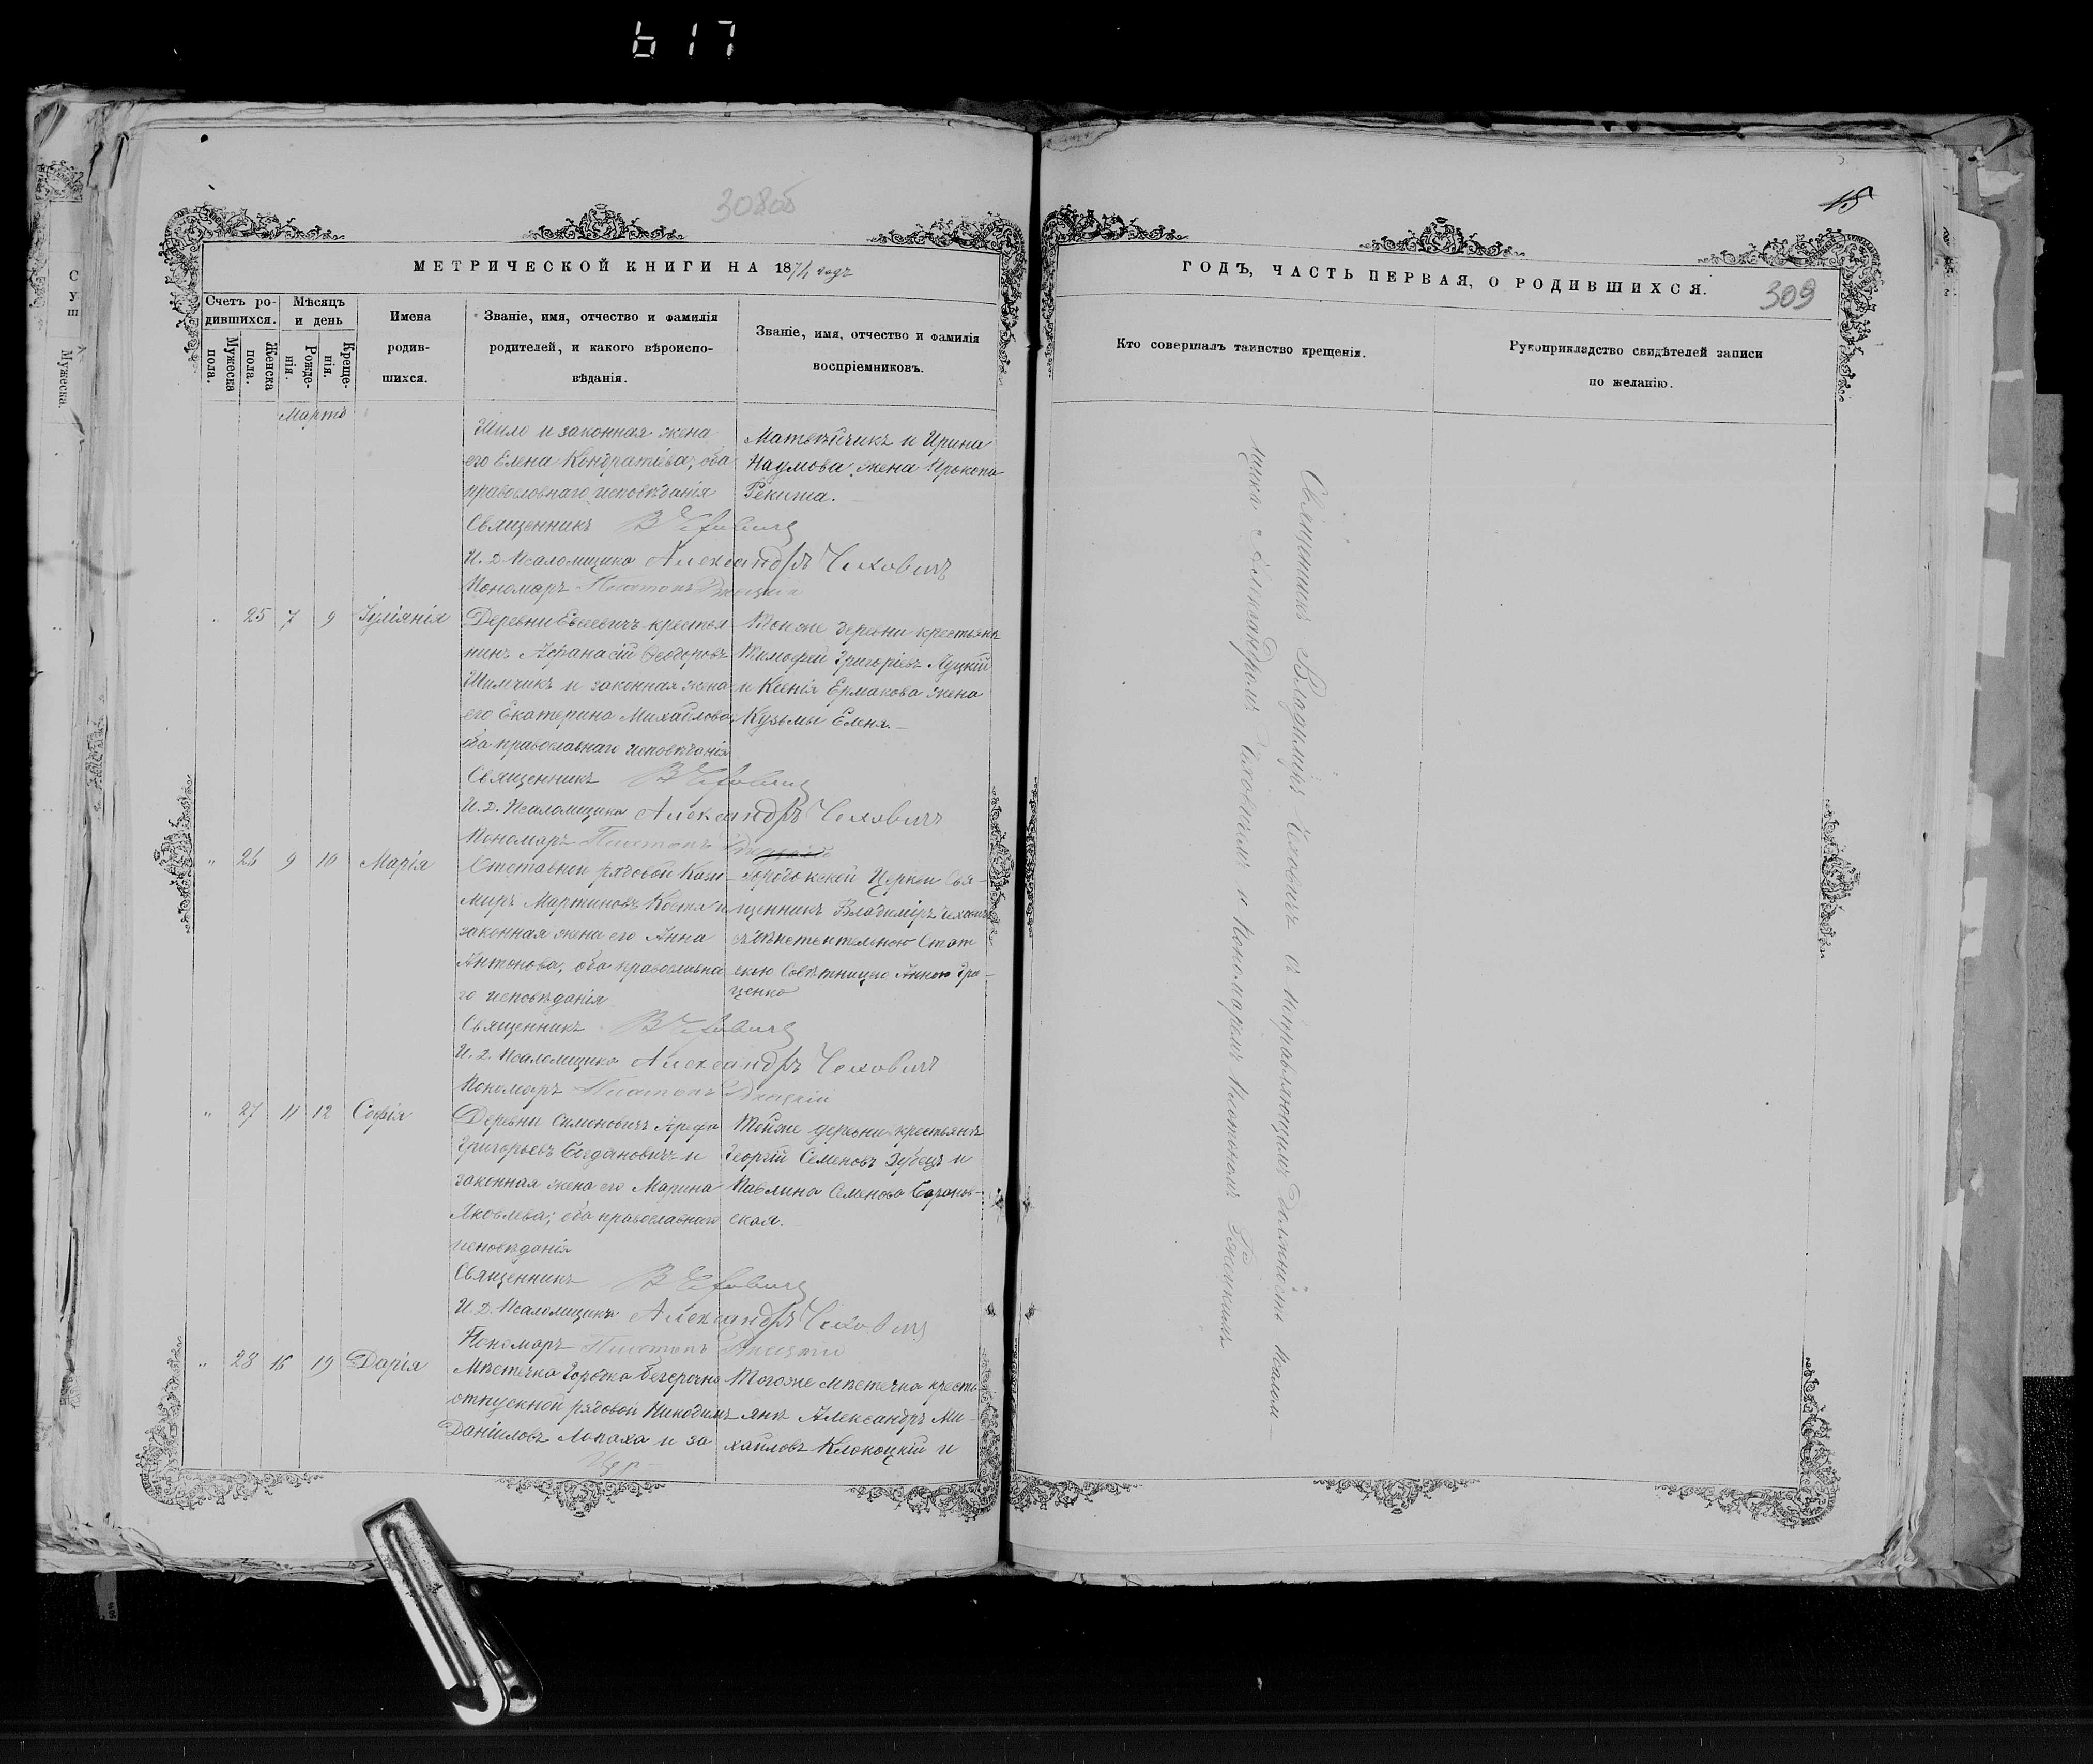 617
308об
МЕТРИЧЕСКОЙ КНИГИ НА 1874 годъ
Счетъ ро-
дившихся.
Мужеска
пола.
Женска
пола.
Мѣсяцъ
и день
Рожде-
нія.
Креще-
нія.
Имена
родив-
шихся.
Званіе, имя, отчество и фамилія
родителей, и какого вѣроиспо-
вѣданія.
Званіе, имя, отчество и фамилія
воспріемниковъ.
Мартъ
Шило и законная жена
его Елена Кондратіева, оба
православнаго исповѣданія
Священникъ
И. Д. Псаломщика Александръ Чеховичъ
Пономарь Платонъ
Матвѣйчикъ и Ирина
Наумова, жена Прокопа
Рекиша.
" 25 7 9 Іуліанія
Деревни Евсевичъ крестья
нинъ Афанасій Ѳеодоровъ
Шимчикъ и законная жена
его Екатерина Михайлова
оба православнаго исповѣданія
Священникъ
И. Д. Псаломщика Александръ Чеховичъ
Пономарь Платонъ
Тоиже деревни крестьяне
Тимофей Григоріевъ Луцкій
и Ксенія Ермакова жена
Кузьмы Еленя.
" 26 9 10 Марія
Отставной рядовой Кази-
миръ Мартиновъ Костя и
законная жена его Анна
Антонова, оба православна
го исповѣданія
Священникъ
И. Д. Псаломщика Александръ Чеховичъ
Пономарь Платонъ
Городокской Церкви Свя-
щенникъ Владиміръ Чехович
съ Дѣйствительною Стат
скою Совѣтницею Анною Гра-
ценко
" 27 11 12 Софія
Деревни Симоновичъ Арефа
Григорьевъ Богдановичъ и
законная жена его Марина
Яковлева; оба православнаго
исповѣданія
Священникъ
И. Д. Псаломщика Александръ Чеховичъ
Пономарь Платонъ
Тойже деревни крестьяне
Георгій Семеновъ Зубецъ и
Павлина Семенова Баранов-
ская.
" 28 16 19 Дарія
Мѣстечка Городка безсрочно
отпускной рядовой Никодимъ
Даніиловъ Лопаха и за
Тогоже мѣстечка кресть
яне Александръ Ми-
хайловъ Клокоцкій и
15
ГОДЪ, ЧАСТЬ ПЕРВАЯ, О РОДИВШИХСЯ.
309
Кто совершалъ таинство крещенія.
Рукоприкладство свидѣтелей записи
по желанію.
Священникъ Владиміръ Чеховичъ съ исправляющимъ должность псалом-
щика Александромъ Чеховичемъ и Пономаремъ Платономъ
С
У
Ш
Мужеска.